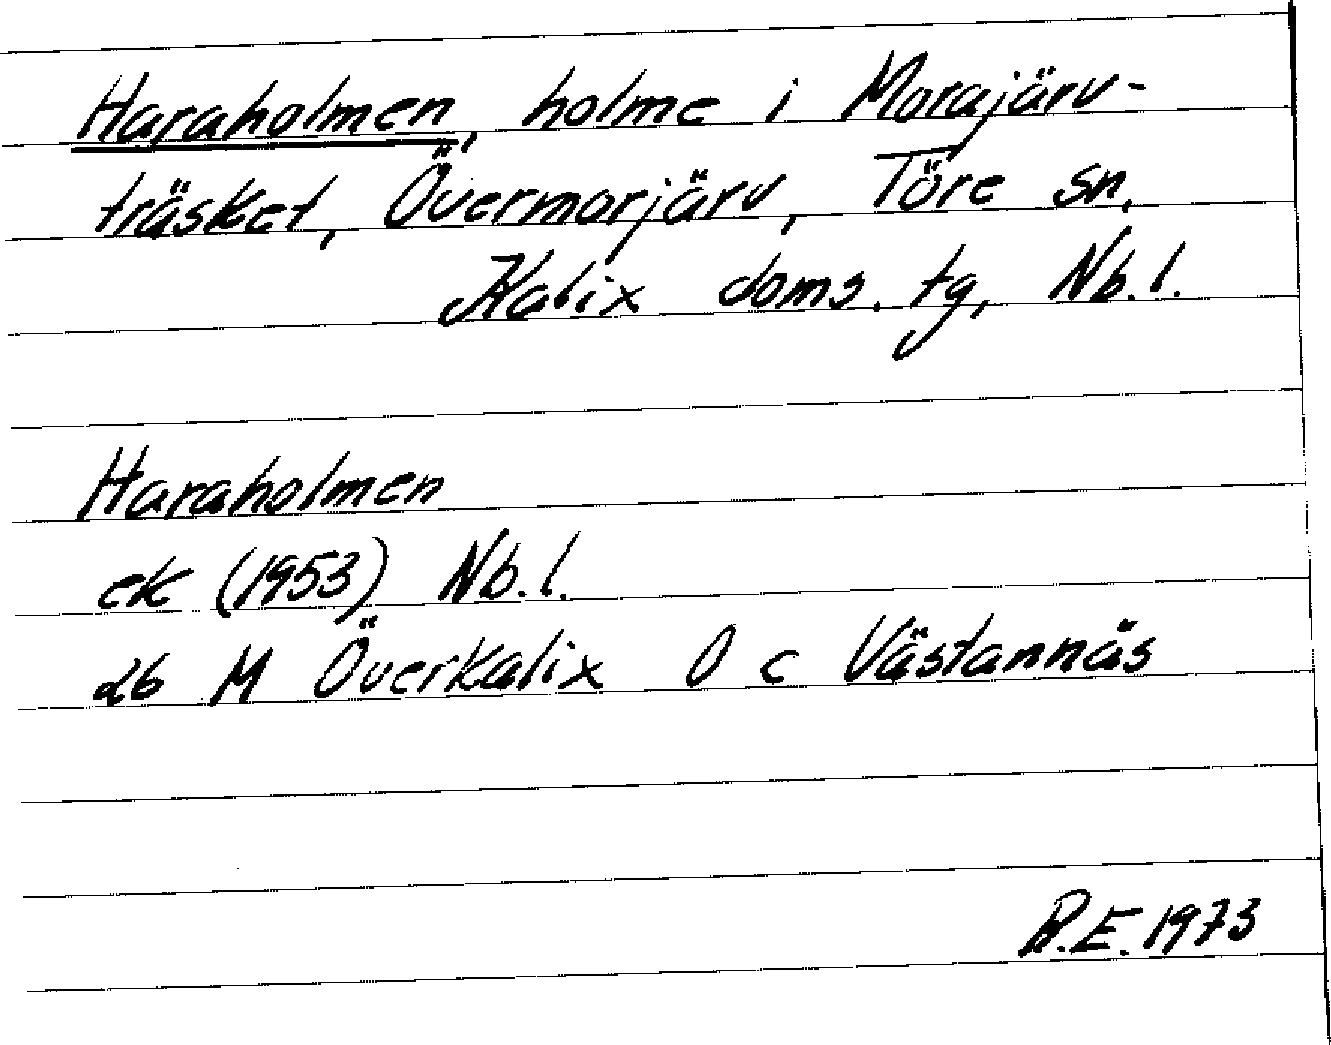 Haraholmen, holme i Morajärv-
träsket, Övermorjärv, Töre sn,
Kalix doms. tg, Nb. l.
Haraholmen
ek (1953) Nb. l.
26 M Överkalix O c Västannäs
R.E. 1973